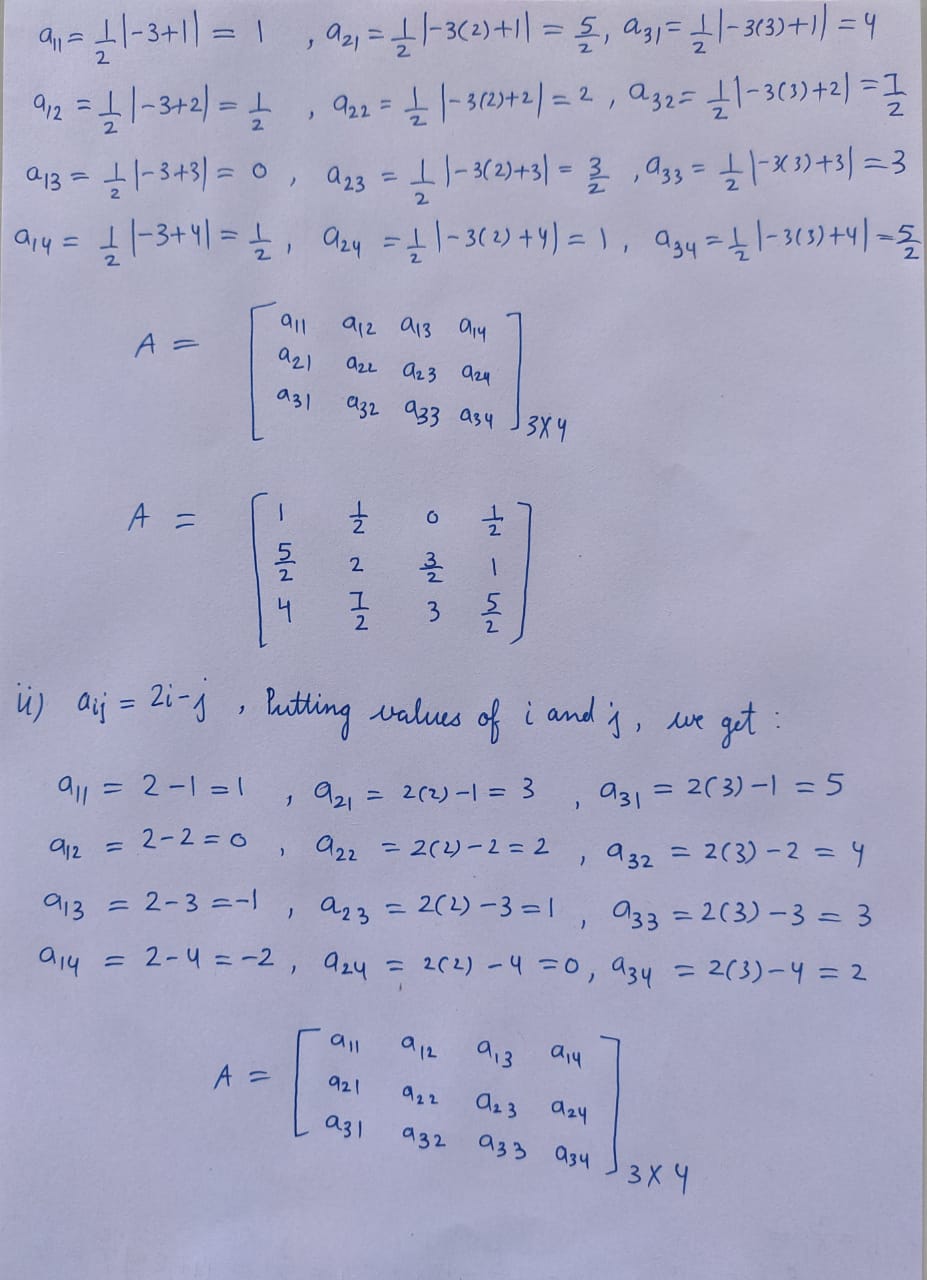 a11 = 1/2 |-3+1| = 1 , a21 = 1/2 |-3(2)+1| = 5/2, a31 = 1/2 |-3(3)+1| = 4
a12 = 1/2 |-3+2| = 1/2 , a22 = 1/2 |-3(2)+2| = 2 , a32 = 1/2 |-3(3)+2| = 7/2
a13 = 1/2 |-3+3| = 0 , a23 = 1/2 |-3(2)+3| = 3/2 , a33 = 1/2 |-3(3)+3| = 3
a14 = 1/2 |-3+4| = 1/2 , a24 = 1/2 |-3(2)+4| = 1 , a34 = 1/2 |-3(3)+4| = 5/2
A = [ a11 a12 a13 a14
a21 a22 a23 a24
a31 a32 a33 a34 ] 3X4
A = [ 1 1/2 0 1/2
5/2 2 3/2 1
4 7/2 3 5/2 ]
ii) aij = 2i-j , Putting values of i and j, we get :
a11 = 2-1=1 , a21 = 2(2)-1 = 3 , a31 = 2(3)-1 = 5
a12 = 2-2=0 , a22 = 2(2)-2=2 , a32 = 2(3)-2 = 4
a13 = 2-3=-1 , a23 = 2(2)-3=1 , a33 = 2(3)-3 = 3
a14 = 2-4=-2 , a24 = 2(2)-4=0, a34 = 2(3)-4 = 2
A = [ a11 a12 a13 a14
a21 a22 a23 a24
a31 a32 a33 a34 ] 3X4